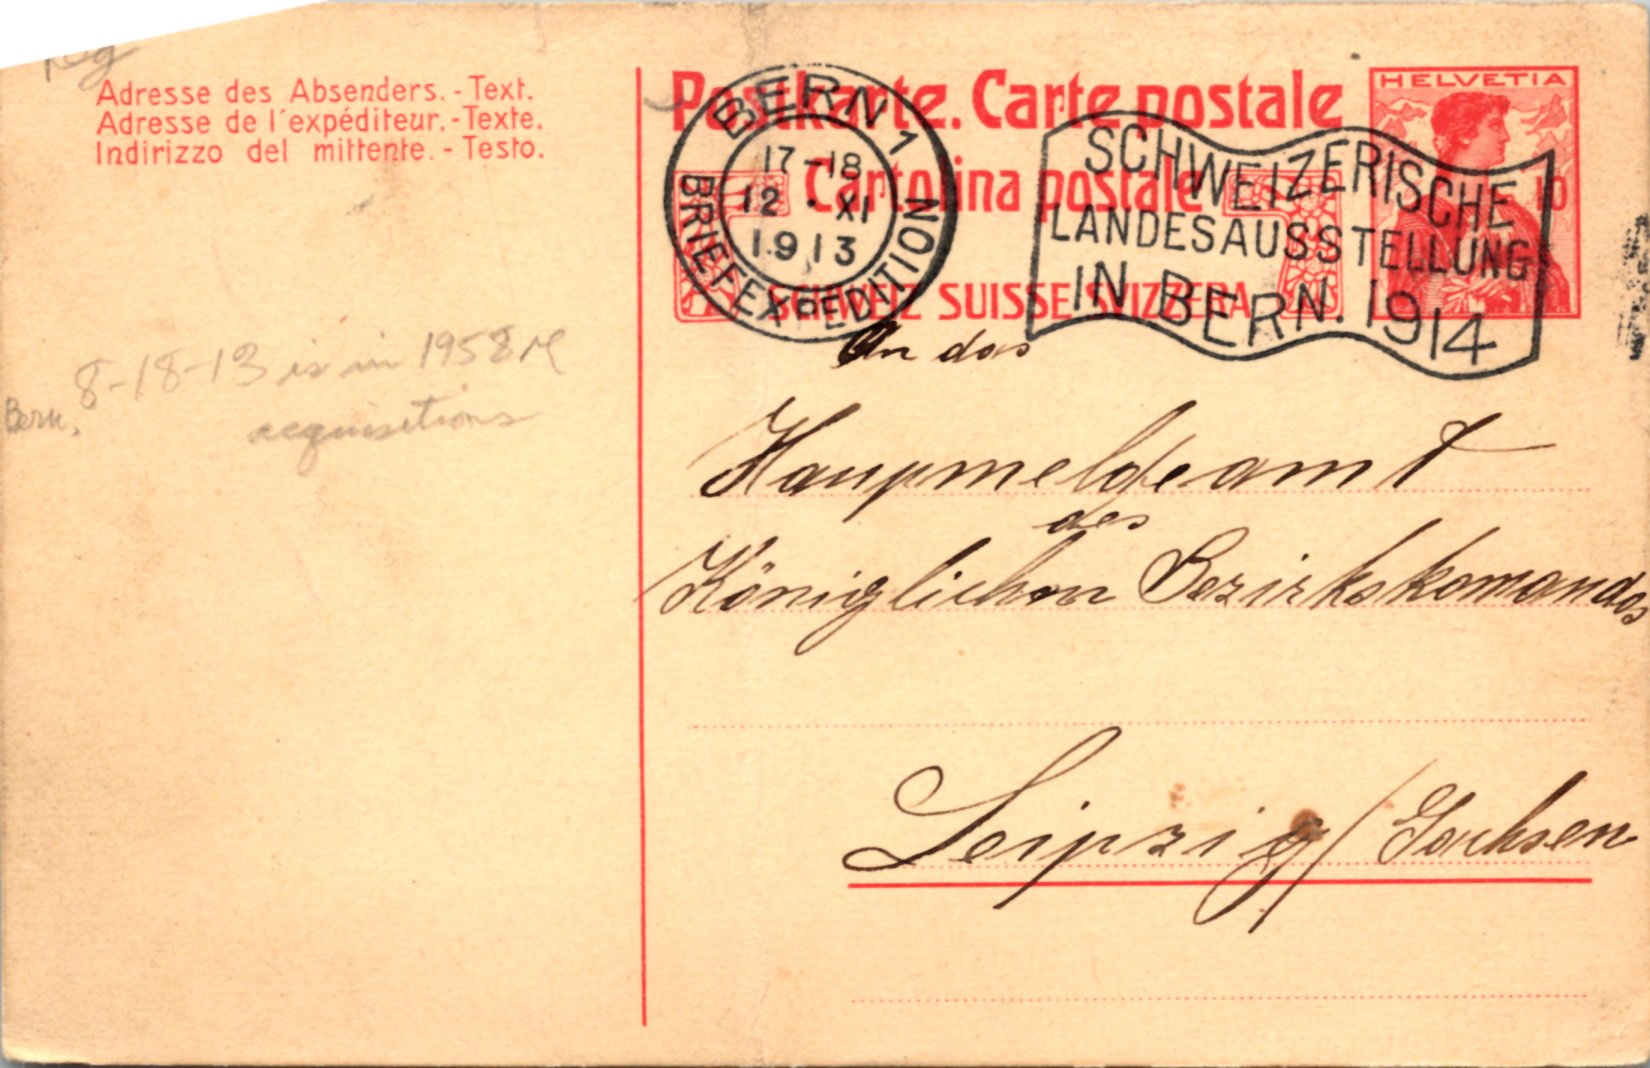 Reg
Adresse des Absenders. - Text.
Adresse de l'expéditeur. - Texte.
Indirizzo del mittente. - Testo.
Postkarte. Carte postale
Cartolina postale
SCHWEIZ SUISSE SVIZZERA
HELVETIA
10
BERN 1
17-18
12 · XI
1913
BRIEFEXPEDITION
SCHWEIZERISCHE
LANDESAUSSTELLUNG
IN BERN. 1914
8-18-13 is in 1958
Bern.
acquisitions
An das
Haupmeldeamt
des
Königlichen Bezirkskomandos
Leipzig / Sachsen